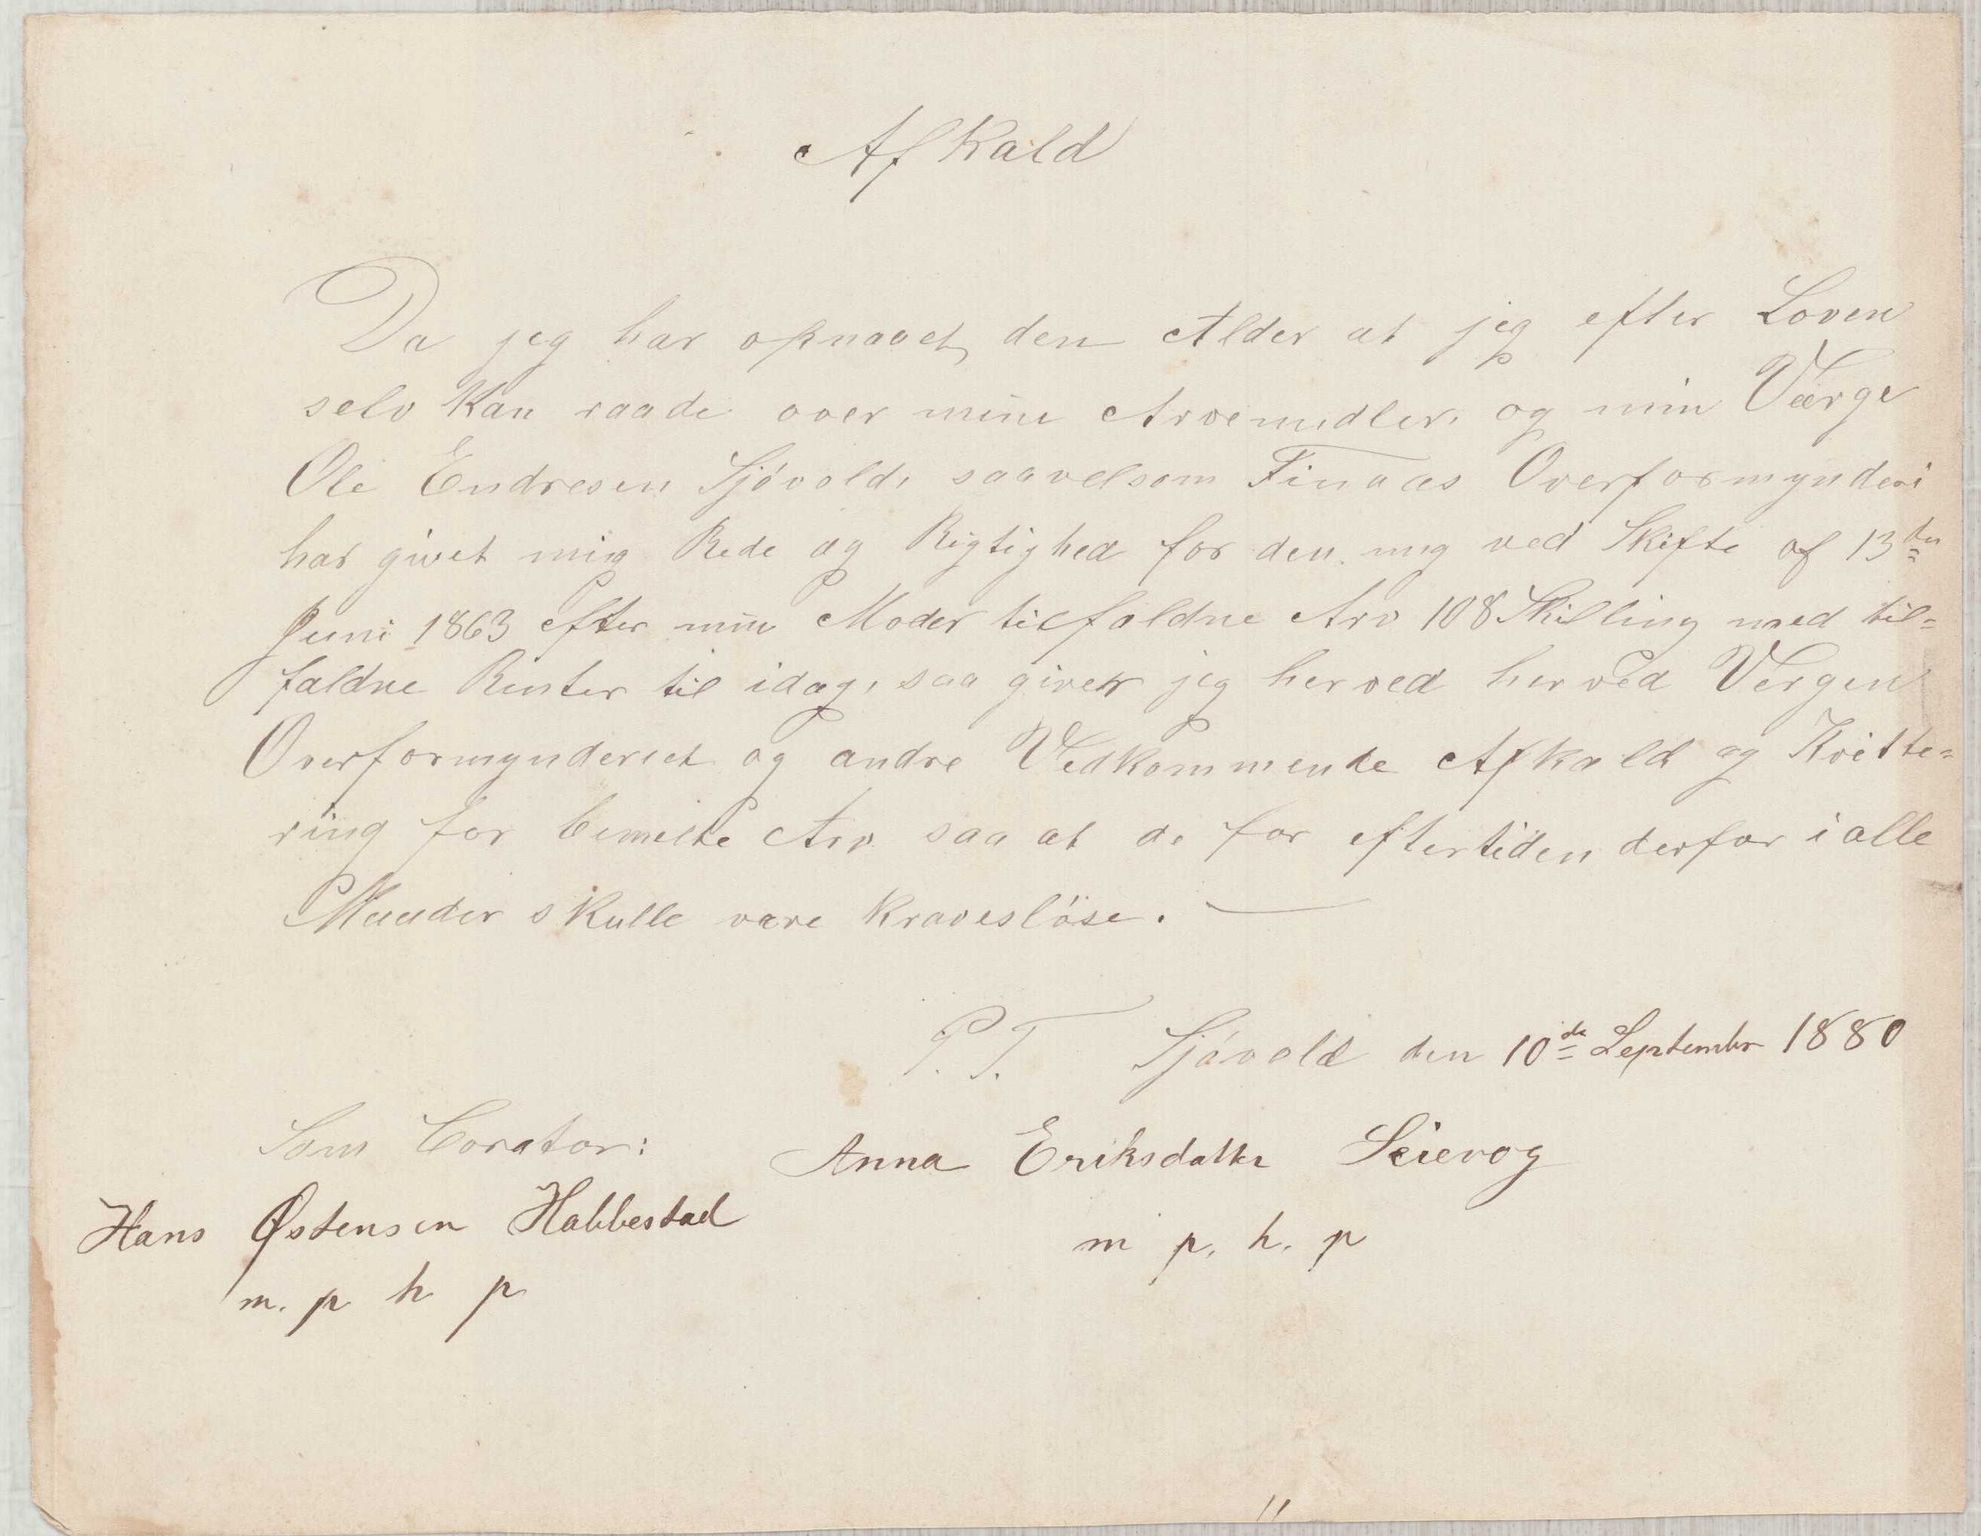 Afkald
Da jeg har opnaaet den Alder at jeg efter Loven
selv kan raade over mine Arvemidler, og min Værge
Ole Endresen Sjövold, saavelsom Finaas Overformynderi
har givet mig Rede og Rigtighed for den mig ved Skifte af 13de
Juni 1863 efter min Moder tilfaldne Arv 108 Skilling med til=
faldne Renter til idag, saa giver jeg herved herved Vergen
Overformynderiet og andre Vedkommende Afkald og Kvitte=
ring for bemelte Arv saa at de for eftertiden derfor i alle
Maader skulle være kravesløse. —
P. T. Sjövold den 10de September 1880
Som Corator: Anna Eriksdatter Seievog
Hans Østensen Habbestad m p. h. p
m. p h p